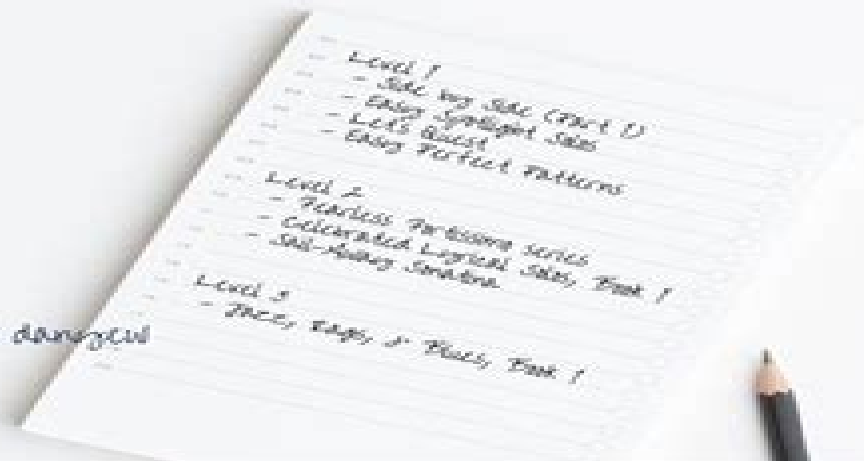 Level 1
- Side by Side (Part 1)
- Easy Spotlight Solos
- Let's Quest
- Easy Perfect Patterns
Level 2
- Fearless Fortissimo Series
- Celebrated Lyrical Solos, Book 1
- Sail-Away Sonatina
Level 3
- Jazz, Rags, & Blues, Book 1